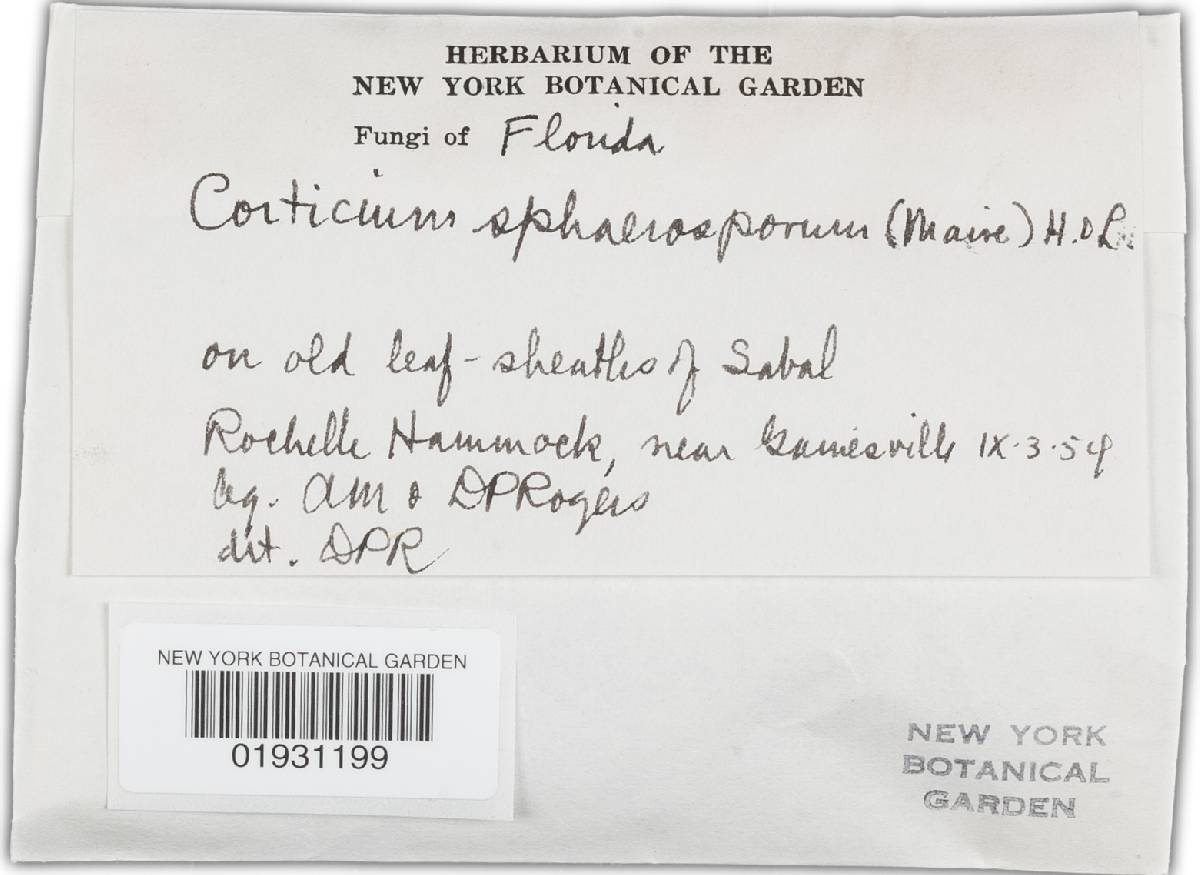 HERBARIUM OF THE
NEW YORK BOTANICAL GARDEN
Fungi of Florida
Corticium sphaerosporum (Maire) H. & L.
on old leaf-sheaths of Sabal
Rochelle Hammock, near Gainesville IX.3.54
leg. AM & DPRogers
det. DPR
NEW YORK BOTANICAL GARDEN
01931199
NEW YORK
BOTANICAL
GARDEN